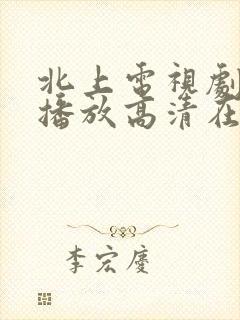 北上電視劇
播放高清在
李宏慶